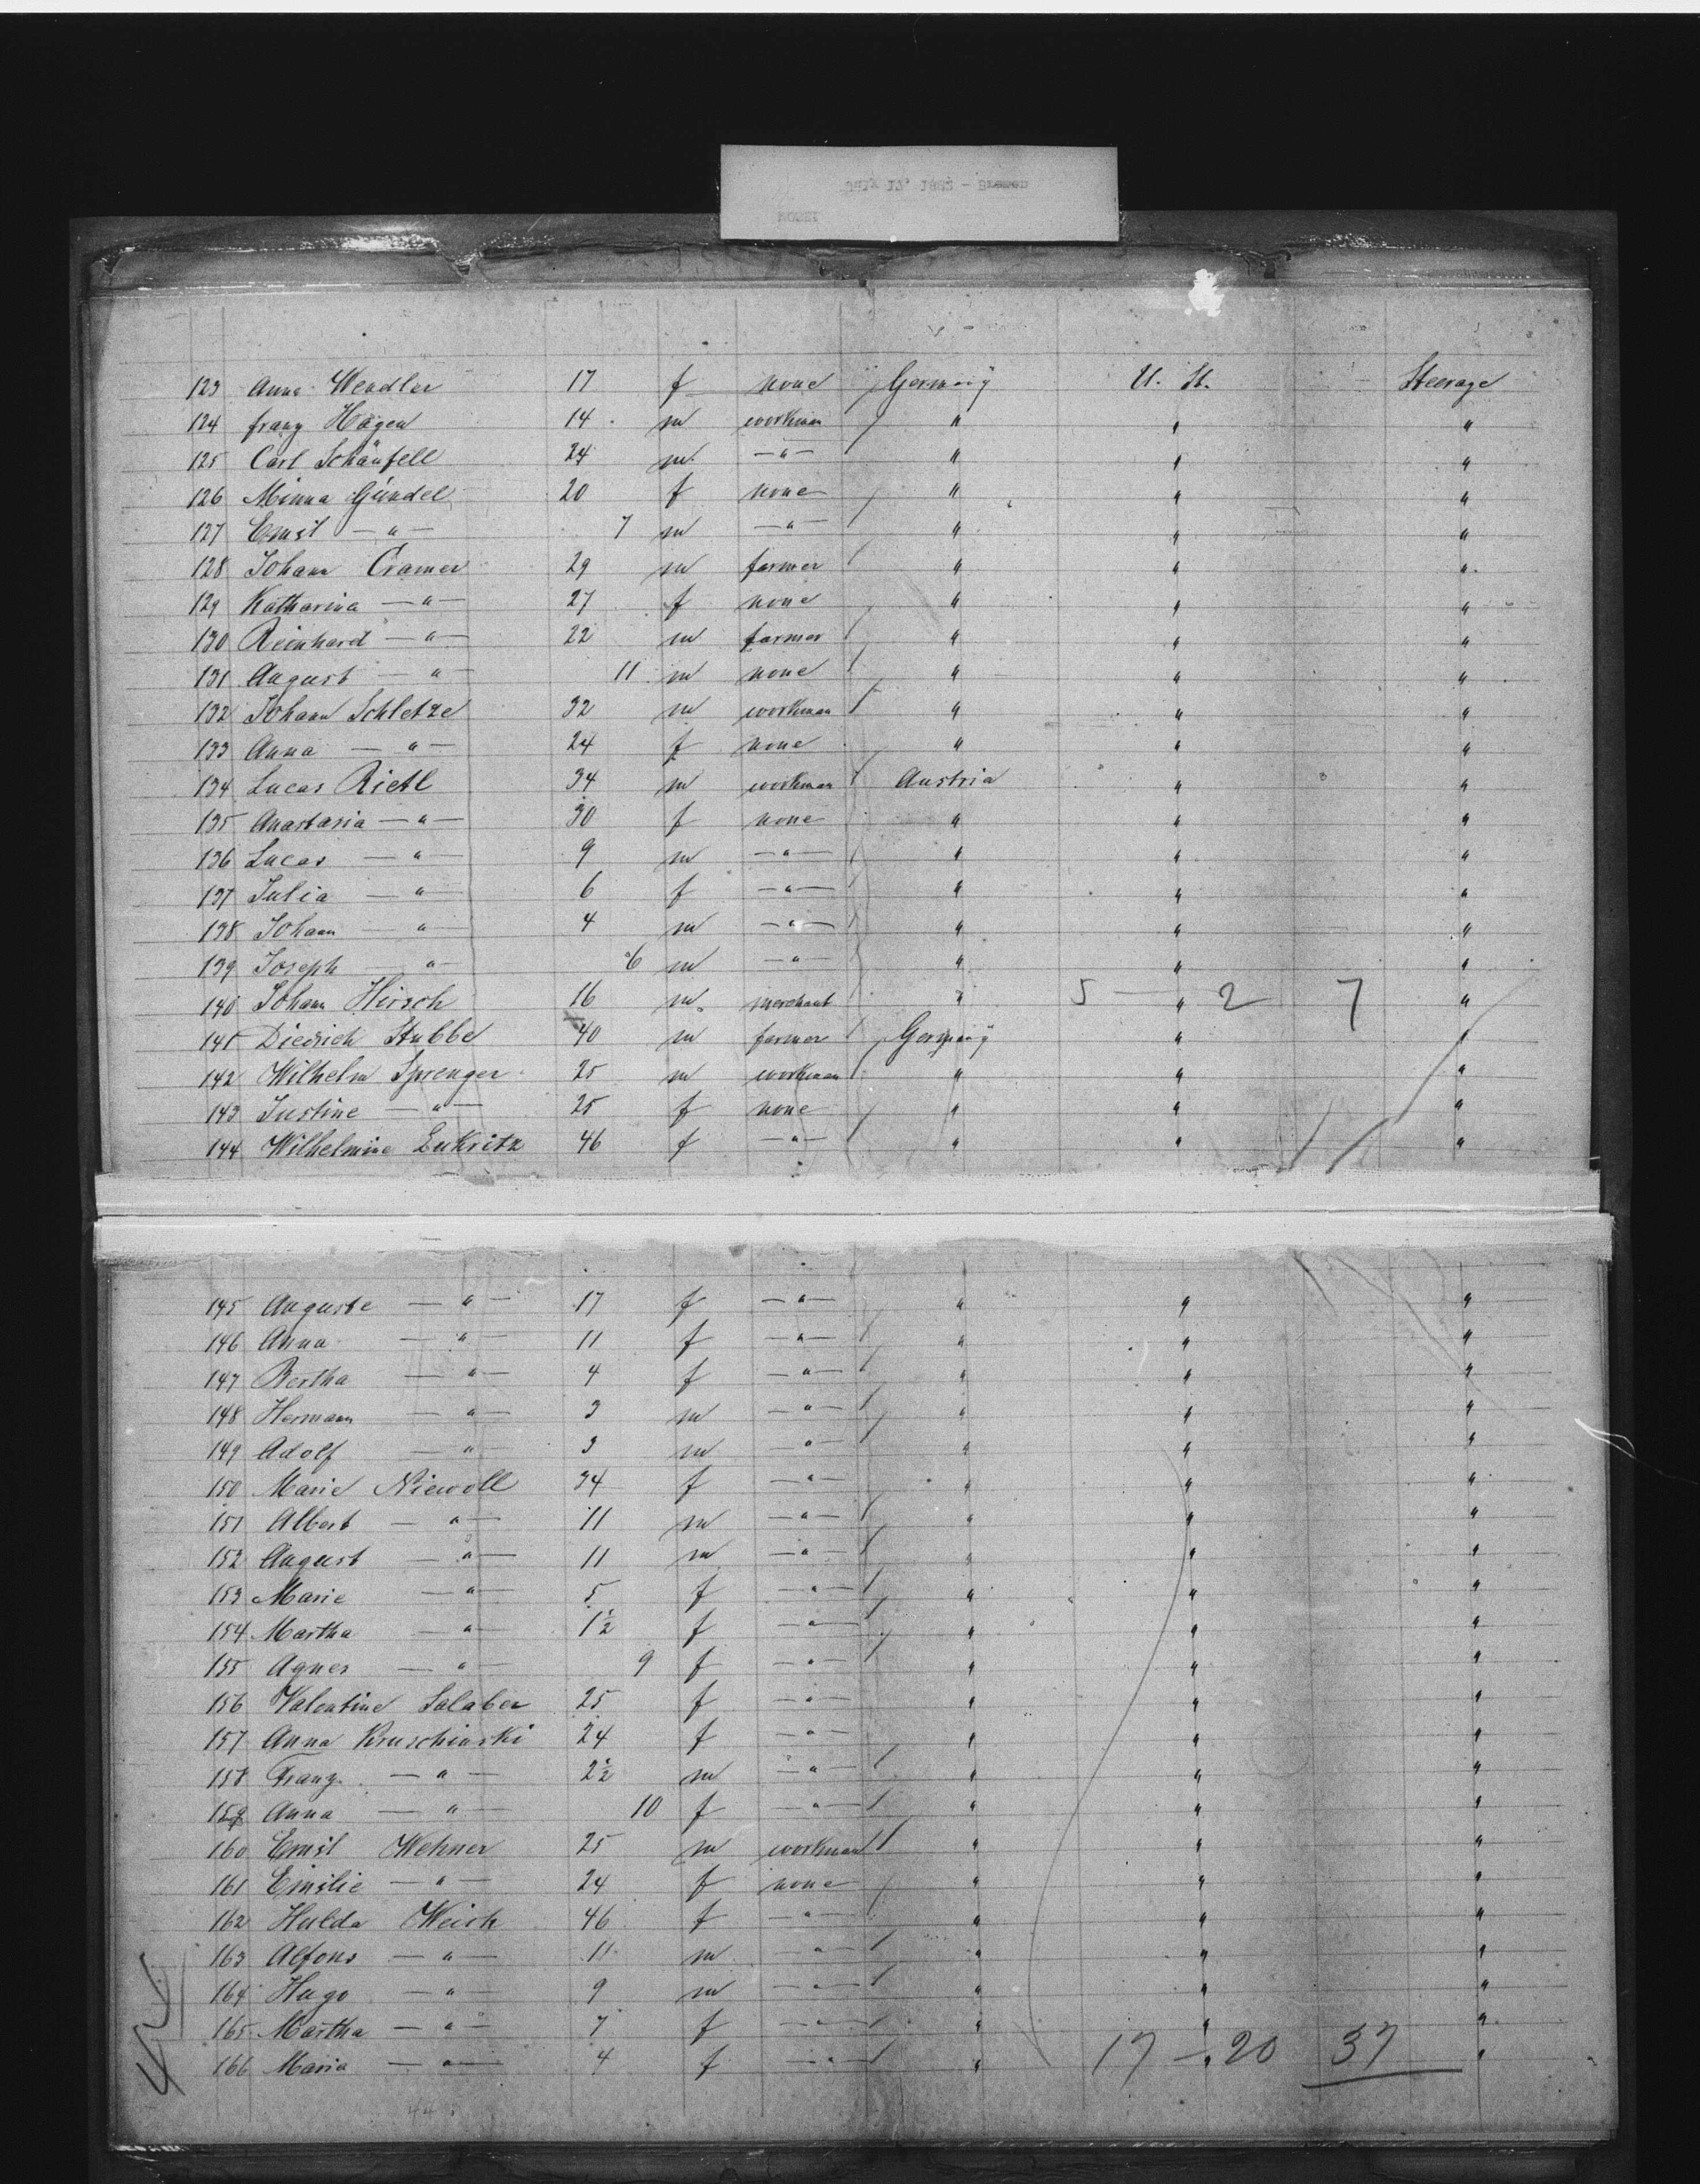 123 Anna Wendler 17 f none Germany U. St. Steerage
124 franz Hagen 14 m workman " " "
125 Carl Schäufell 24 m — " — " " "
126 Minna Gündel 20 f none " " "
127 Ernst — " — 7 m — " — " " "
128 Johann Cramer 29 m farmer " " "
129 Katharina — " — 27 f none " " "
130 Reinhard — " — 22 m farmer " " "
131 August — " — 11 m none " " "
132 Johann Schletze 32 m workman " " "
133 Anna — " — 24 f none " " "
134 Lucas Rietl 34 m workman Austria " "
135 Anastasia — " — 30 f none " " "
136 Lucas — " — 9 m — " — " " "
137 Julia — " — 6 f — " — " " "
138 Johann — " — 4 m — " — " " "
139 Joseph — " — 6 m — " — " " "
140 Johann Hirsch 16 m merchant " 5 — " 2 7 "
141 Diedrich Stubbe 40 m farmer Germany " "
142 Wilhelm Sprenger 25 m workman " " "
143 Justine — " — 25 f none " " "
144 Wilhelmine Lukritz 46 f — " — " " "
145 Auguste — " — 17 f — " — " " "
146 Anna — " — 11 f — " — " " "
147 Bertha — " — 4 f — " — " " "
148 Hermann — " — 3 m — " — " " "
149 Adolf — " — 3 m — " — " " "
150 Marie Niewoll 34 f — " — " " "
151 Albert — " — 11 m — " — " " "
152 August — " — 11 m — " — " " "
153 Marie — " — 5 f — " — " " "
154 Martha — " — 1½ f — " — " " "
155 Agnes — " — 9 f — " — " " "
156 Valentine Salaber 25 f — " — " " "
157 Anna Kruschinski 24 f — " — " " "
158 Franz — " — 2½ m — " — " " "
159 Anna — " — 10 f — " — " " "
160 Ernst Wehner 25 m workman " " "
161 Emilie — " — 24 f none " " "
162 Hulda Weich 46 f — " — " " "
163 Alfons — " — 11 m — " — " " "
164 Hugo — " — 9 m — " — " " "
165 Martha — " — 7 f — " — " " "
166 Maria — " — 4 f — " — " 17 — " 20 37 "